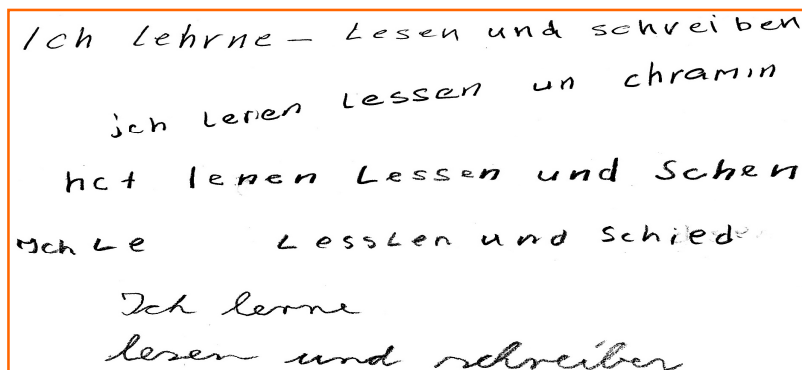 Ich Lehrne – Lesen und schreiben
ich Lenen Lessen un chramin
hct lenen Lessen und Schen
Ich Le LessLen und Schied
Ich lerne
lesen und schreiben